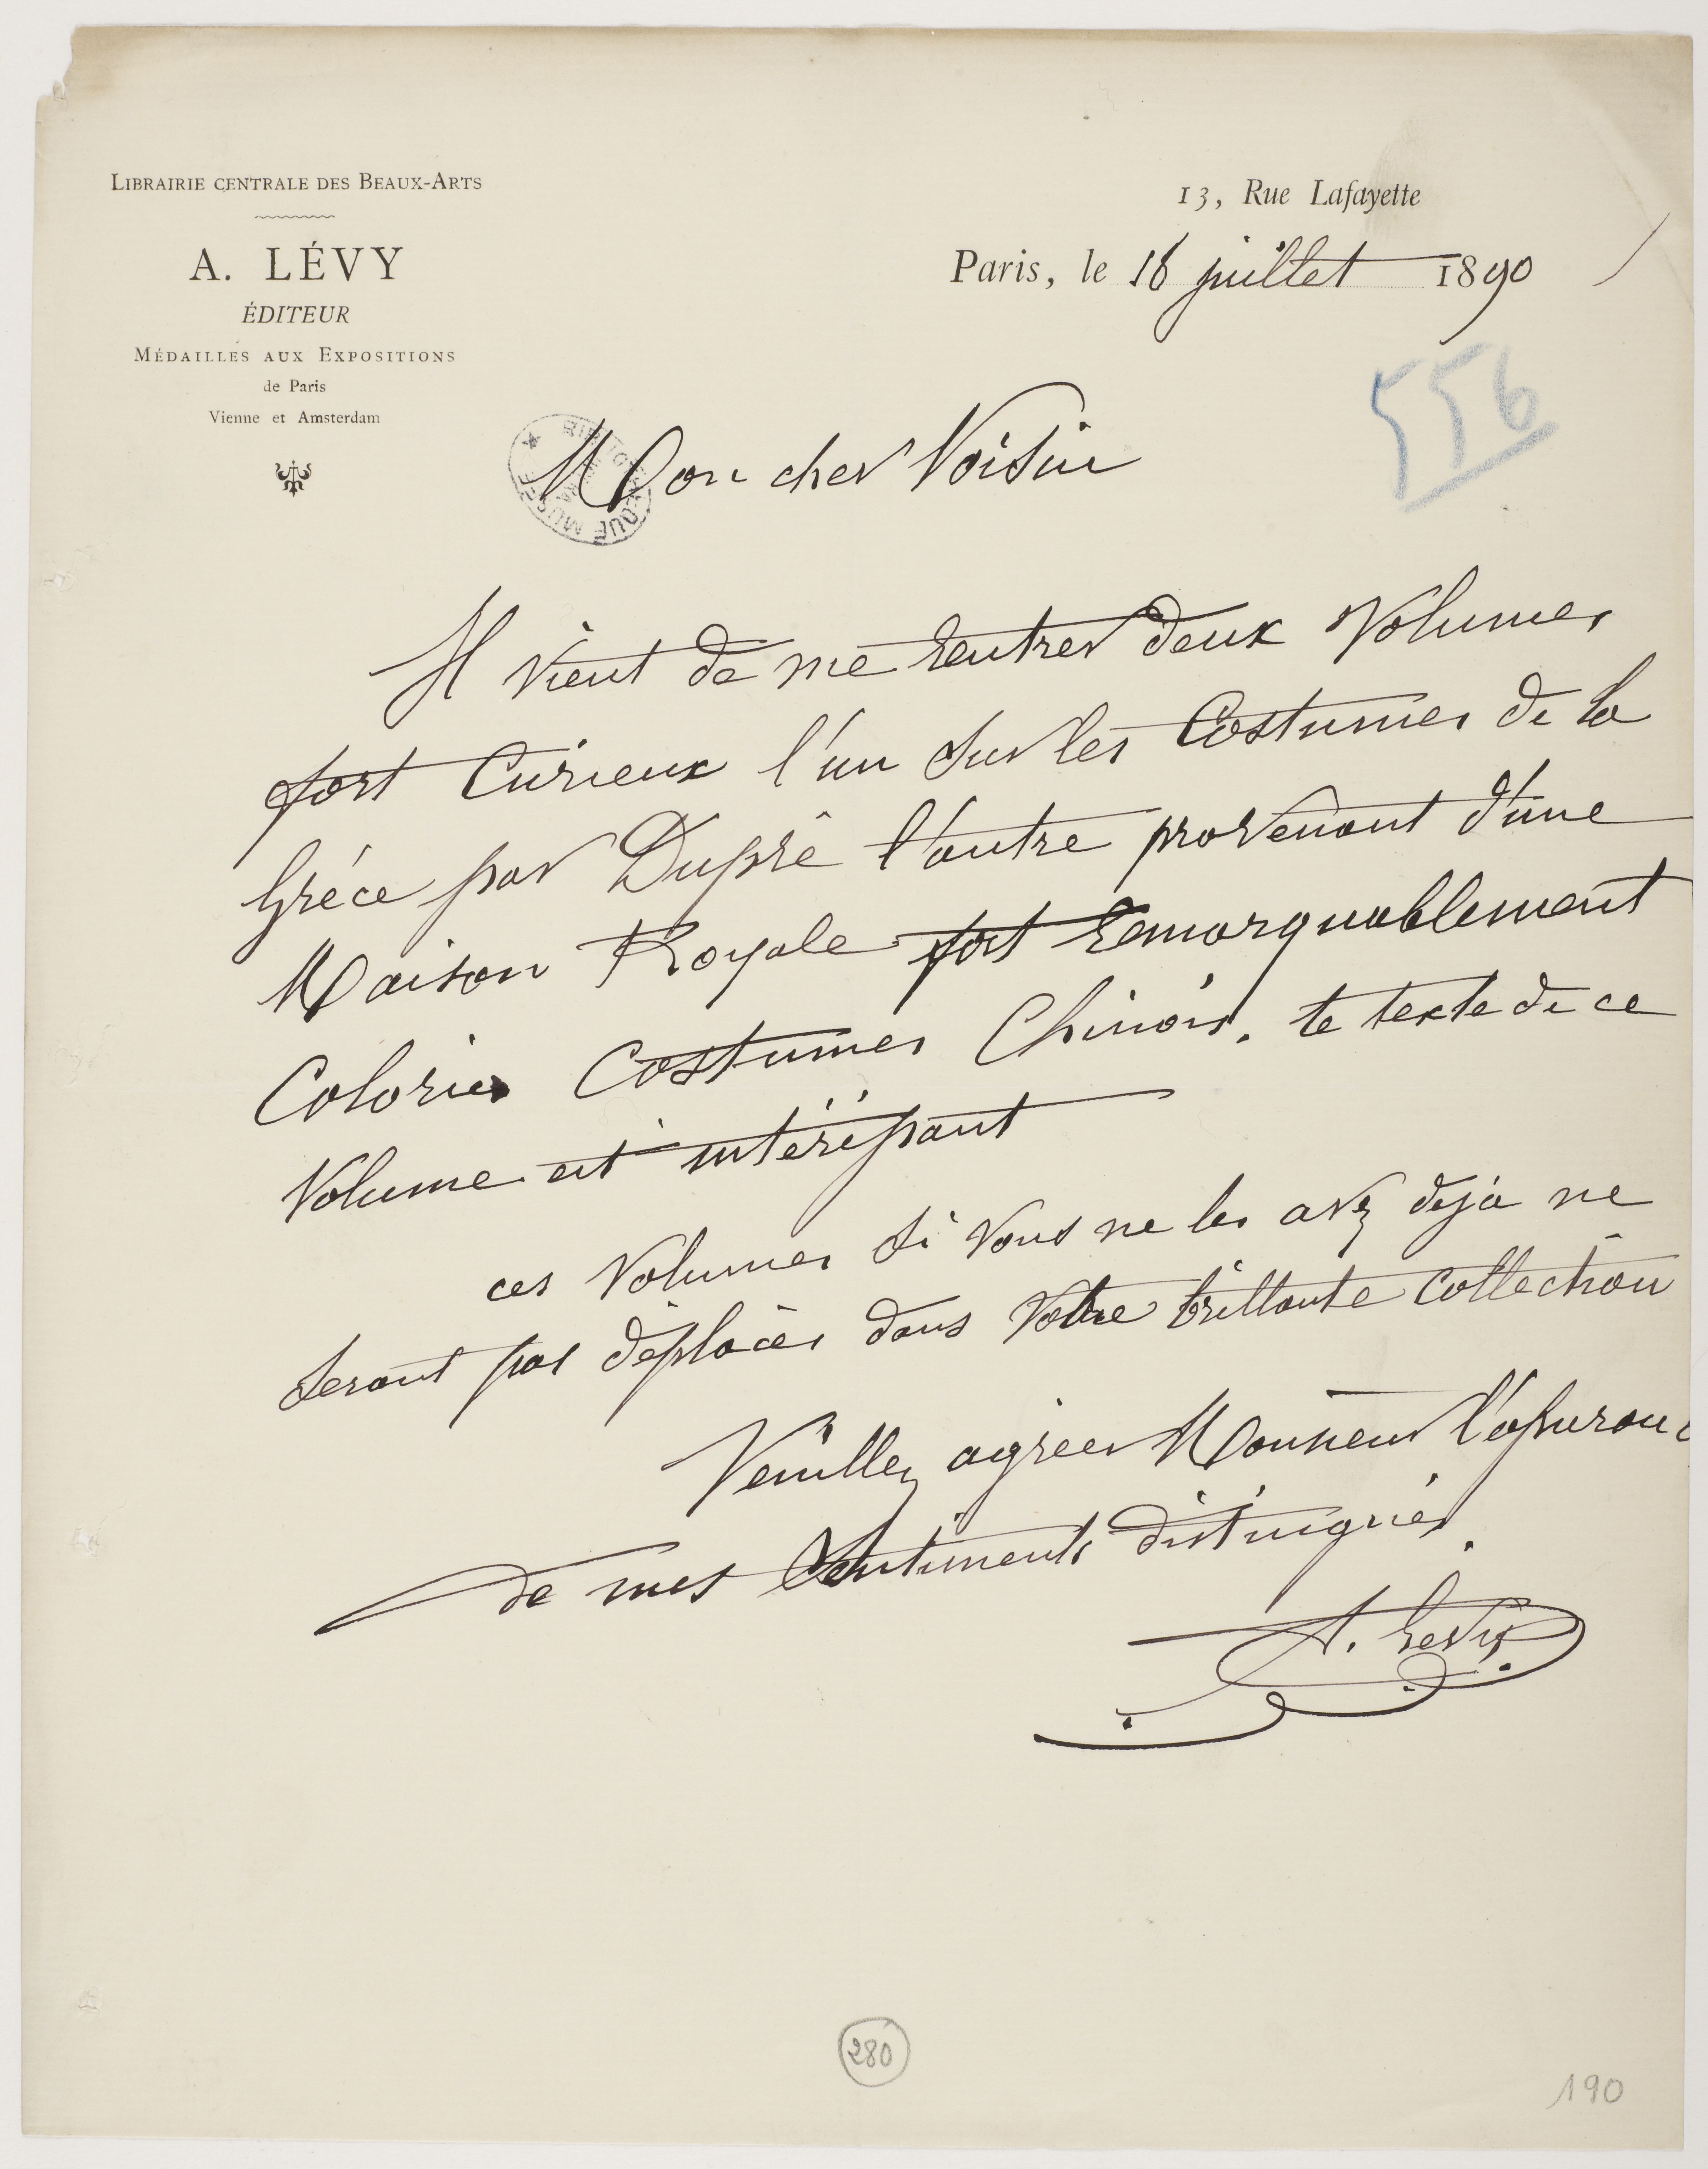 LIBRAIRIE CENTRALE DES BEAUX-ARTS
A. LÉVY
ÉDITEUR
MÉDAILLES AUX EXPOSITIONS
de Paris
Vienne et Amsterdam
13, Rue Lafayette
Paris, le 18 juillet 1890
556
Mon cher Voisin
Il vient de me rentrer deux Volumes
fort Curieux l'un sur les Costumes de la
Gréce par Dupré l'autre provenant d'une
Maison Royale fort remarquablement
Coloriés Costumes Chinois. le texte de ce
Volume est intéréssant
ces Volumes si vous ne les avez déjà ne
seront pas déplacés dans Votre brillante Collection
Veuillez agréer Monsieur l'assurance
de mes Sentiments distingués.
A. Levy
280
190